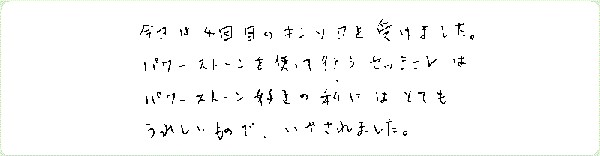 今日は4回目のキンソロを受けました。
パワーストーンを使って行うセッションは
パワーストーン好きの私にはとても
うれしいもので、いやされました。